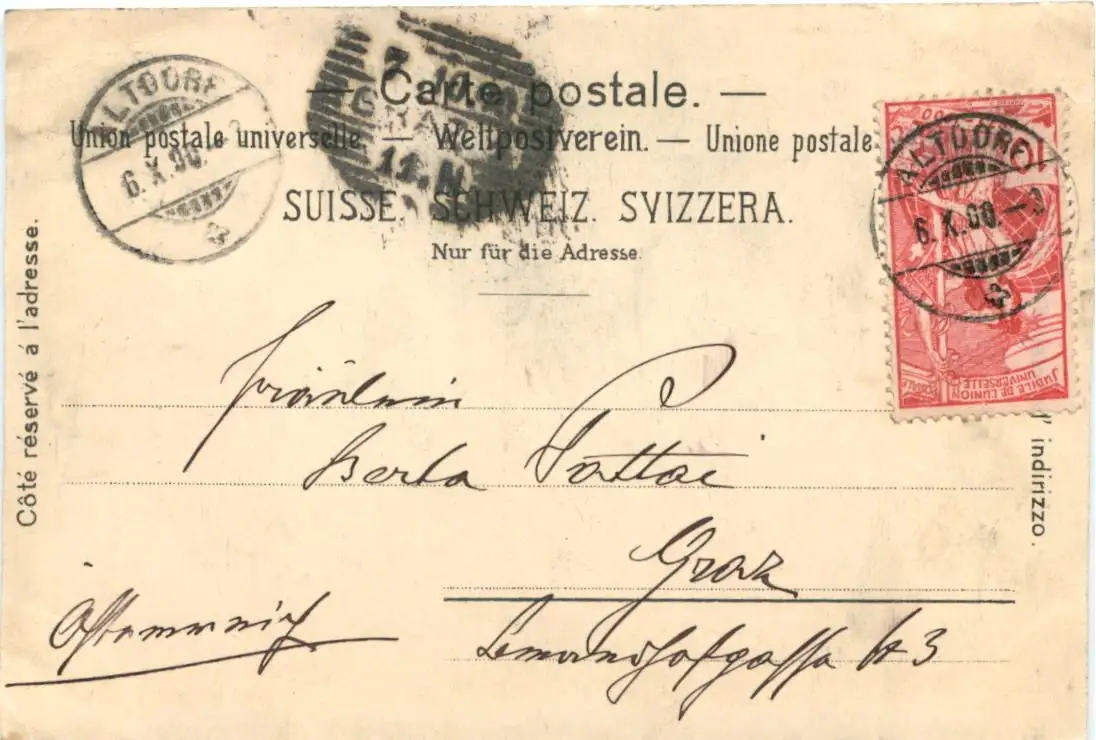 Carte postale. —
Union postale universelle. — Weltpostverein. — Unione postale
SUISSE. SCHWEIZ. SVIZZERA.
Nur für die Adresse.
Côté réservé á l'adresse.
d'indirizzo.
ALTDORF
6.X.00.
GRAZ
ALTDORF
6.X.00.-9
JUBILÉ DE L'UNION
UNIVERSELLE
POSTALE
Fräulein
Berta Pottai
Graz
3
Österreich